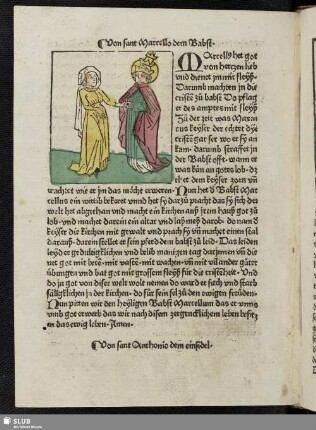 Von sant Marcello dem Babst.
MArcellꝰ het got
von hertzen lieb
vnd dienet jm mit fleyß.
Darumb machten jn die
cristē zů babst Do pflag
er des amptes mit fleyß
Zů der zeit was Maxi
cus keyser der echtet die
cristē gar ser wo er sy an
kam. darumb straffet in
der Babst offt. wann er
was kün an gotes lob. dz
thet dem keyser zorn vn̄
trachtet wie er jm das möcht erweren. Nun het d Babst Mar
cellus ein wittib bekeret vnnd het sy dar zů pracht das sy sich des
welt het abgethan vnd macht ein kirchen auß jrem hauß got zů
lob. vnd machte darein ein altar vnd laß meß darob. do nam d
keyser die kirchen mit gewalt vnd prach sy vn̄ machet einen stal
darauß. darein stellet er sein pferd dem babst zů leid. Das leiden
leyd er gedultigklichen vnd belib manigen tag darjnnen vn̄ die
net got mit bete. mit vaste. mit wachen. vn̄ mit vil ander gůter
übungen vnd bat got mit grossem fleyß für die cristēheit. Vnd
do jn got von diser welt wolt nemen do ward er siech vnd starb
säligklichen jn der kirchen. do für sein sel zů den ewigen freüden.
Nun pitten wir den heyligen Babst Marcellum das er vmb
vnß got erwerb das wir nach disem zergencklichem leben besitz
en das ewig leben. Amen.
Von sant Anthonio dem einsidel.
SLUB
Wir führen Wissen.